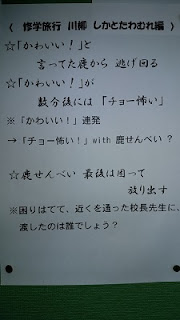 ( 修学旅行 川柳 しかとたわむれ編 )
☆「かわいい!」と
言ってた鹿から 逃げ回る
☆「かわいい!」が
数分後には 「チョー怖い」
※「かわいい!」連発
→「チョー怖い!」with 鹿せんべい?
☆鹿せんべい 最後は困って
放り出す
※困りはてて、近くを通った校長先生に、
渡したのは誰でしょう?